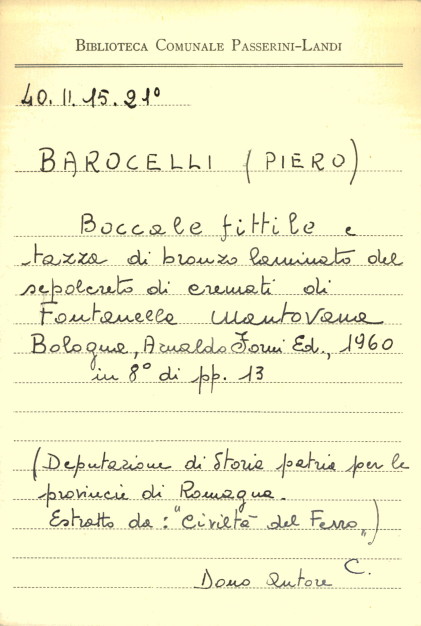 BIBLIOTECA COMUNALE PASSERINI-LANDI
40.II.15.21°
BAROCELLI (PIERO)
Boccale fittile e
tazza di bronzo laminato del
sepolcreto di cremati di
Fontanella Mantovana
Bologna, Arnaldo Forni Ed., 1960
in 8° di pp. 13
(Deputazione di Storia patria per le
provincie di Romagna.
Estratto da: "Civiltà del Ferro„)
Dono Autore C.